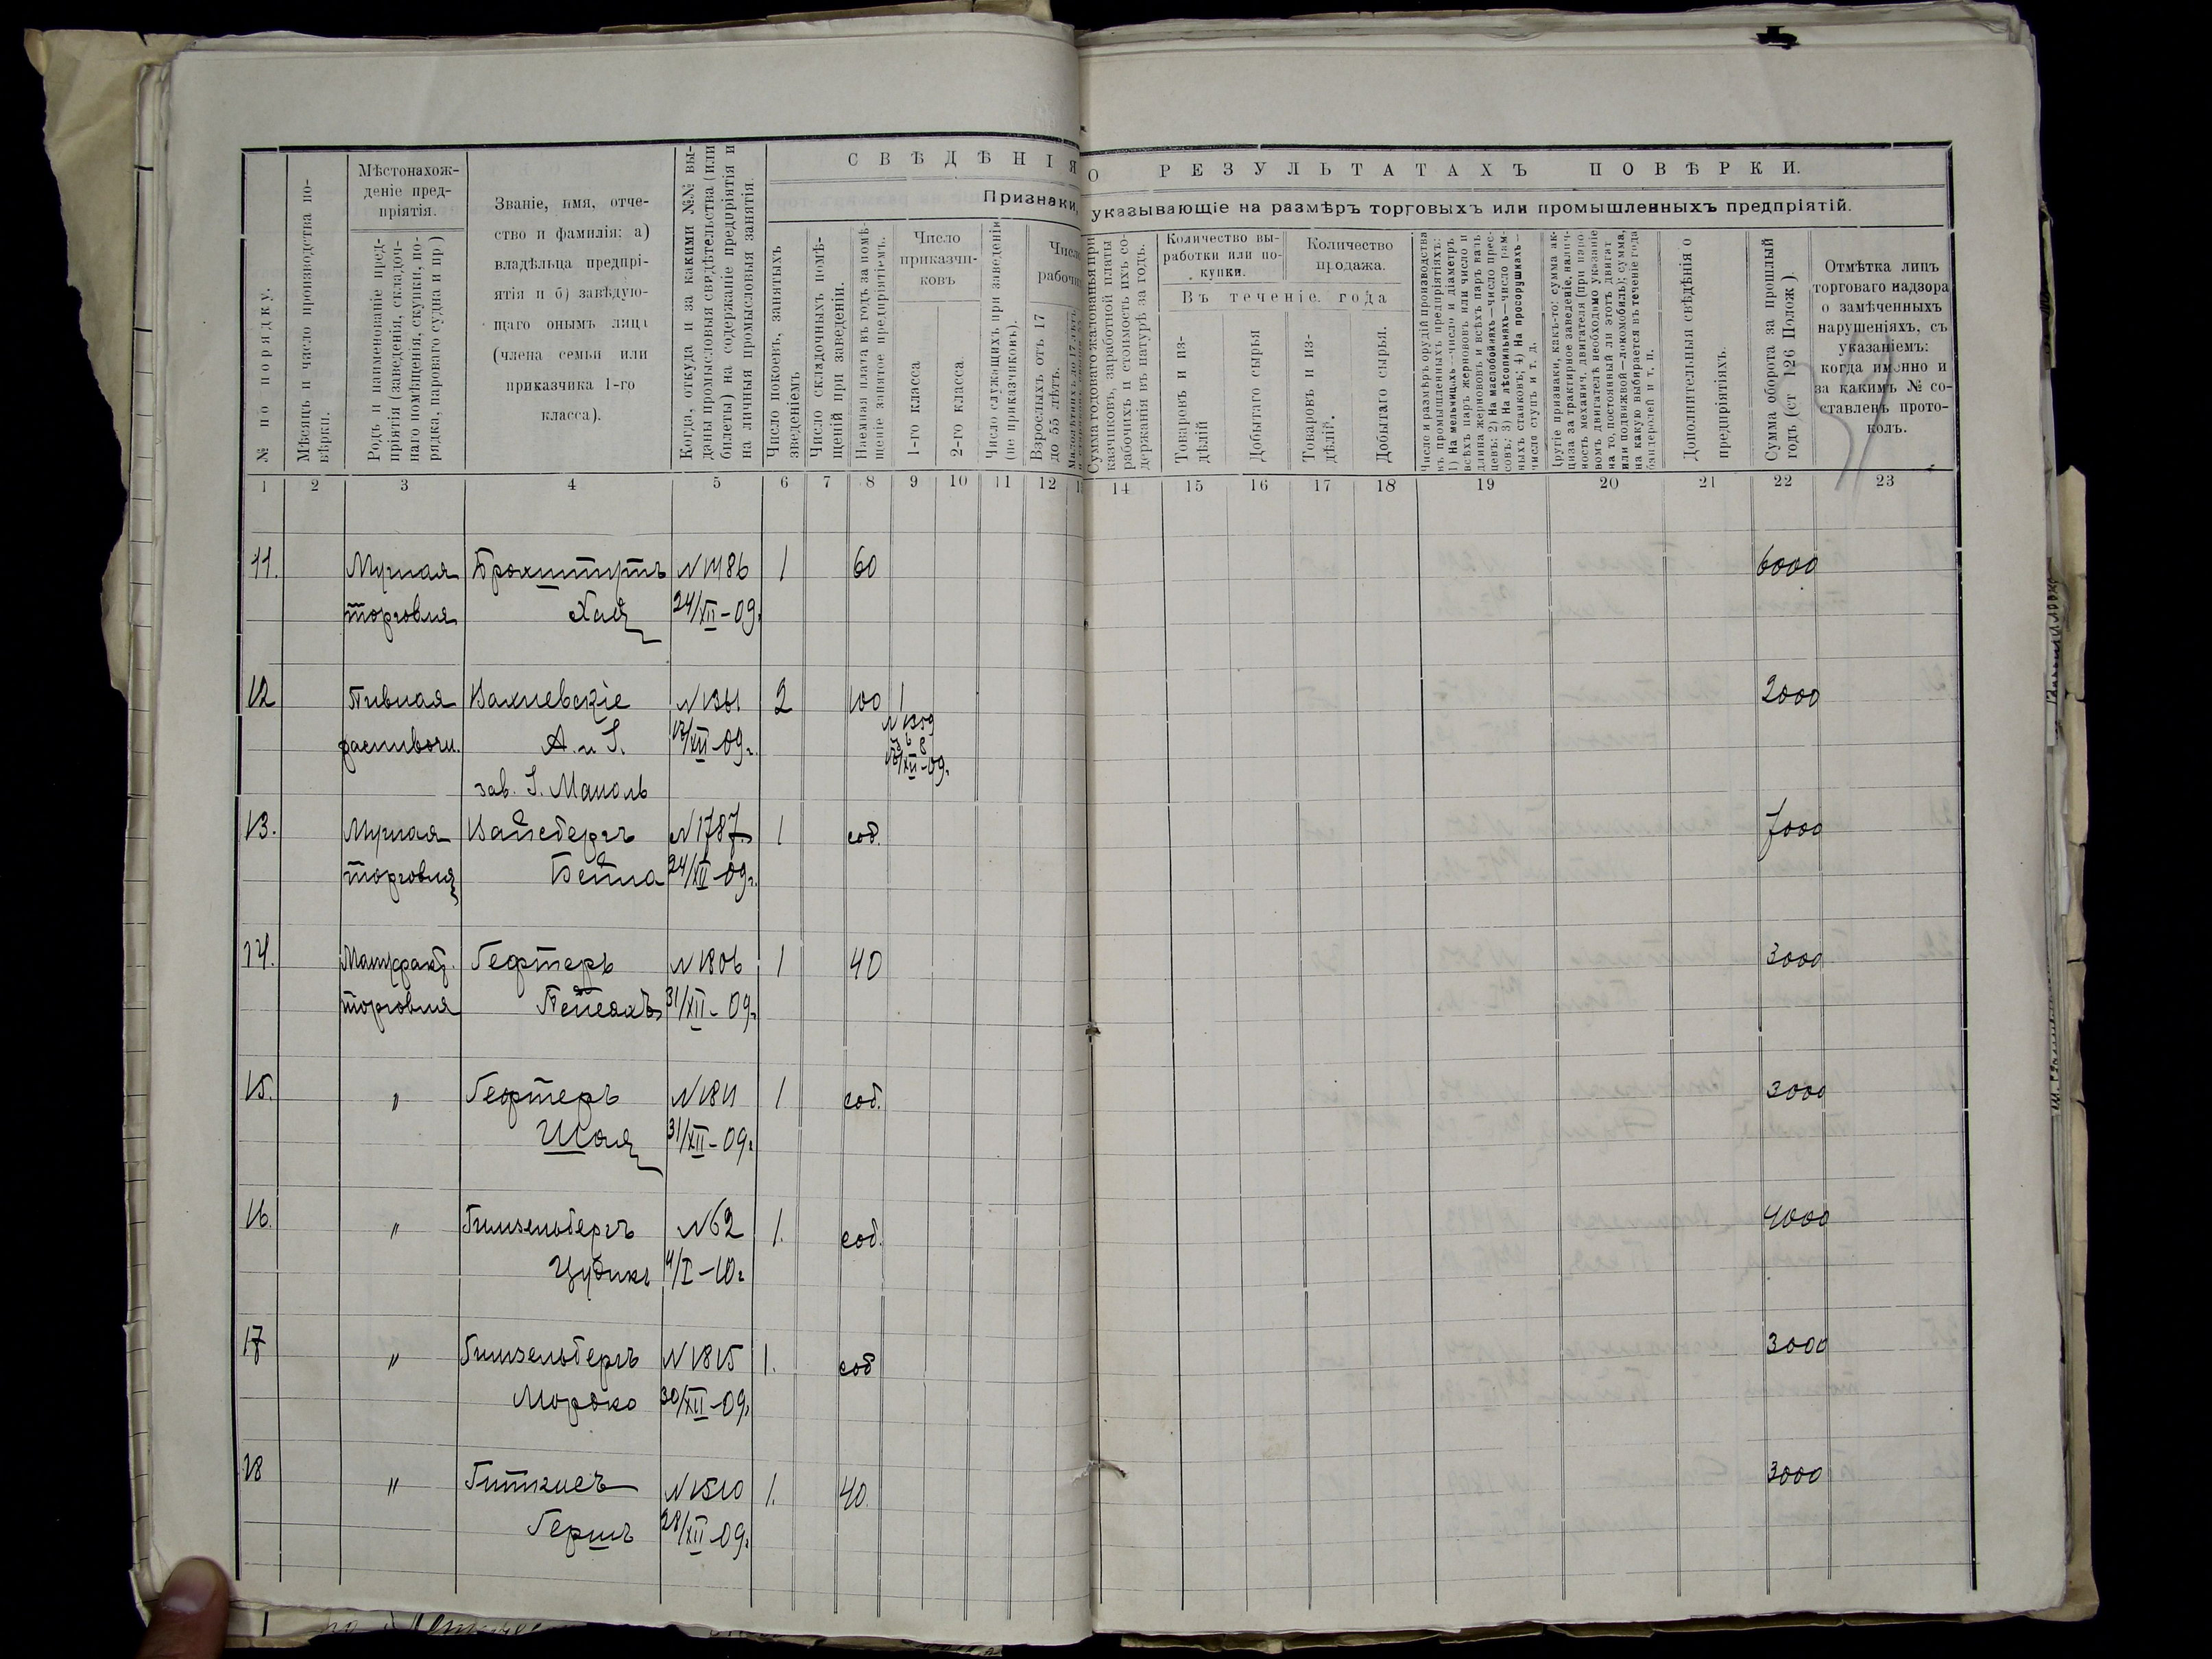 СВѢДѢНІЯ О РЕЗУЛЬТАТАХЪ ПОВѢРКИ.
Признаки, указывающіе на размѣръ торговыхъ или промышленныхъ предпріятій.
№ по порядку.
Мѣсяцъ и число производства по-
вѣрки.
Мѣстонахож-
деніе пред-
пріятія.
Родъ и наименованіе пред-
пріятія (заведенія, складоч-
наго помѣщенія, скупки, по-
рядка, парового судна и пр.)
Званіе, имя, отче-
ство и фамилія: а)
владѣльца предпрі-
ятія и б) завѣдую-
щаго онымъ лица
(члена семьи или
приказчика 1-го
класса).
Когда, откуда и за какими №№ вы-
даны промысловыя свидѣтельства (или
билеты) на содержаніе предпріятія и
на личныя промысловыя занятія.
Число покоевъ, занятыхъ
зведеніемъ
Число складочныхъ помѣ-
щеній при заведеніи.
Наемная плата въ годъ за помѣ-
щеніе занятое предпріятіемъ.
Число
приказчи-
ковъ
1-го класса
2-го класса.
Число служащихъ при заведеніи
(не приказчиковъ).
Число
рабочи
Взрослыхъ отъ 17
до 55 лѣтъ.
Сумма годоваго жалованья при-
казчиковъ, заработной платы
рабочихъ и стоимость ихъ со-
держанія въ натурѣ за годъ.
Количество вы-
работки или по-
купки.
Количество
продажа.
Въ теченіе года
Товаровъ и из-
дѣлій
Добытаго сырья
Товаровъ и из-
дѣлій.
Добытаго сырья.
Число и размѣръ орудій производства
въ промышленныхъ предпріятіяхъ:
1) На мельницахъ—число и діаметръ
всѣхъ паръ жернововъ или число и
длина жерновъ и всѣхъ паръ валь-
цевъ; 2) На маслобойняхъ—число прес-
совъ; 3) На лѣсопильняхъ—число рам-
ныхъ станковъ; 4) На просорушкахъ—
число ступъ и т. д.
Другіе признаки, какъ-то: сумма ак-
циза за трактирное заведеніе, налич-
ность механич. двигателя (при паро-
вомъ двигателѣ необходимо указаніе
на то, постоянный ли этотъ двигат
или подвижной—локомобиль); сумма,
на какую выбирается въ теченіе года
бандеролей и т. п.
Дополнительныя свѣдѣнія о
предпріятіяхъ.
Сумма оборота за прошлый
годъ (ст 126 Полож ).
Отмѣтка лицъ
торговаго надзора
о замѣченныхъ
нарушеніяхъ, съ
указаніемъ:
когда именно и
за какимъ № со-
ставленъ прото-
колъ.
1 2 3 4 5 6 7 8 9 10 11 12 14 15 16 17 18 19 20 21 22 23
11. Мучная Брохштутъ 1 60 6000
торговля Хая 24/XII-09г
12 Пивная Вахневскіе 2 100 1 2000
распивочн. А. и I. /XII-09г.
зав. I. Маноль
13. Мучная Вайсбергъ N1787 1 соб. 7000
торговля Бейла 24/XII-09г.
14. Мануфакт. Гефтеръ N1806 1 40 3000
торговля Пейсахъ 31/XII-09г
15. " Гефтеръ N1811 1 соб. 3000
Шая 31/XII-09г
16. " Гинзельбергъ N62 1. соб. 4000
Цудикъ 4/I-10г
17 " Гинзельбергъ N1815 1. соб 3000
Мордко 30/XII-09г
18 " Гиткисъ N1510 1. 40 3000
Гершъ 28/XII-09г